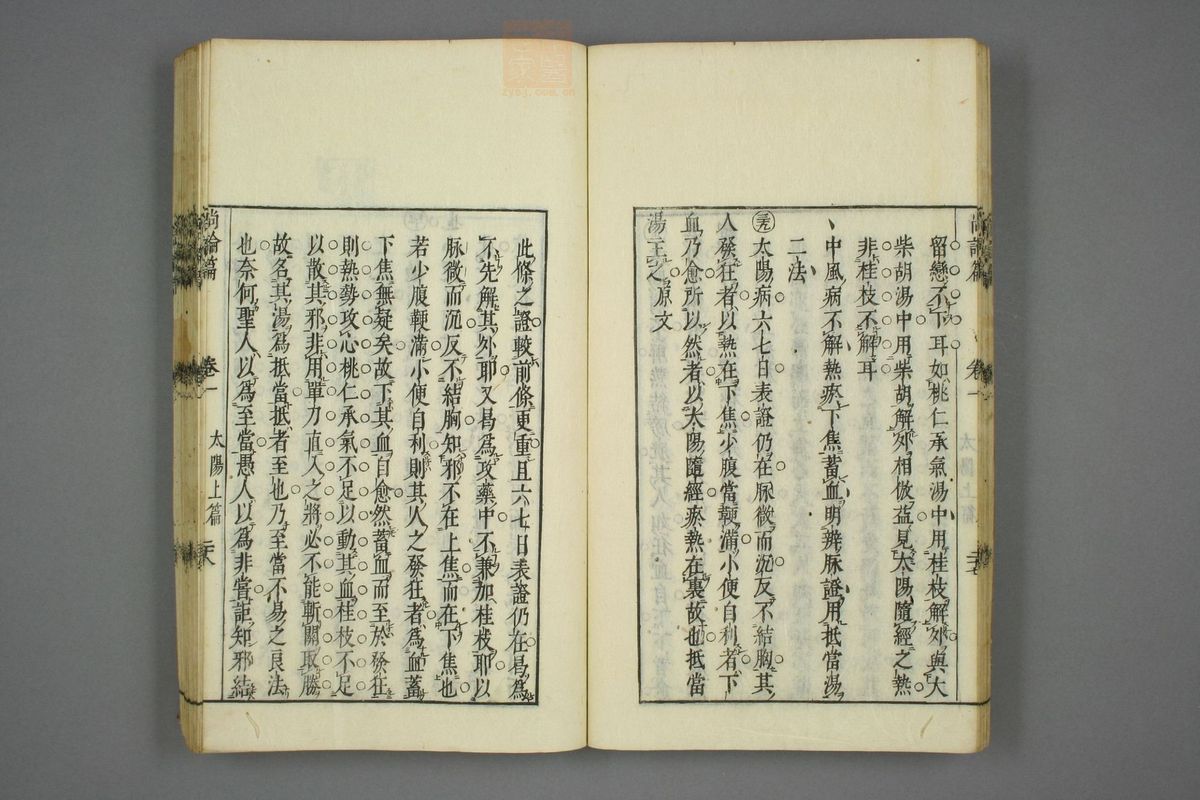 留戀不下耳如桃仁承氣湯中用桂枝解外與大
柴胡湯中用柴胡解外相倣葢見太陽隨經之熱
非桂枝不解耳
中風病不解熱瘀下焦蓄血明辨脉證用抵當湯
二法
太陽病六七日表證仍在脉微而沉反不結胸其
人發狂者以熱在下焦少腹當鞕滿小便自利者下
血乃愈所以然者以太陽隨經瘀熱在裏故也抵當
湯主之 原文
尚論篇 卷一 太陽上篇
此條之證較前條更重且六七日表證仍在曷爲
不先解其外耶又曷爲攻藥中不兼加桂枝耶以
脉微而沉反不結胸知邪不在上焦而在下焦也
若少腹鞕滿小便自利則其人之發狂者爲血蓄
下焦無疑矣故下其血自愈然蓄血而至於發狂
則熱勢攻心桃仁承氣不足以動其血桂枝不足
以散其邪非用單刀直入之將必不能斬關取勝
故名其湯爲抵當抵者至也乃至當不易之良法
也奈何聖人以爲至當愚人以爲非嘗詎知邪結
尚論篇 卷一 太陽上篇 二十八
zysj.com.cn